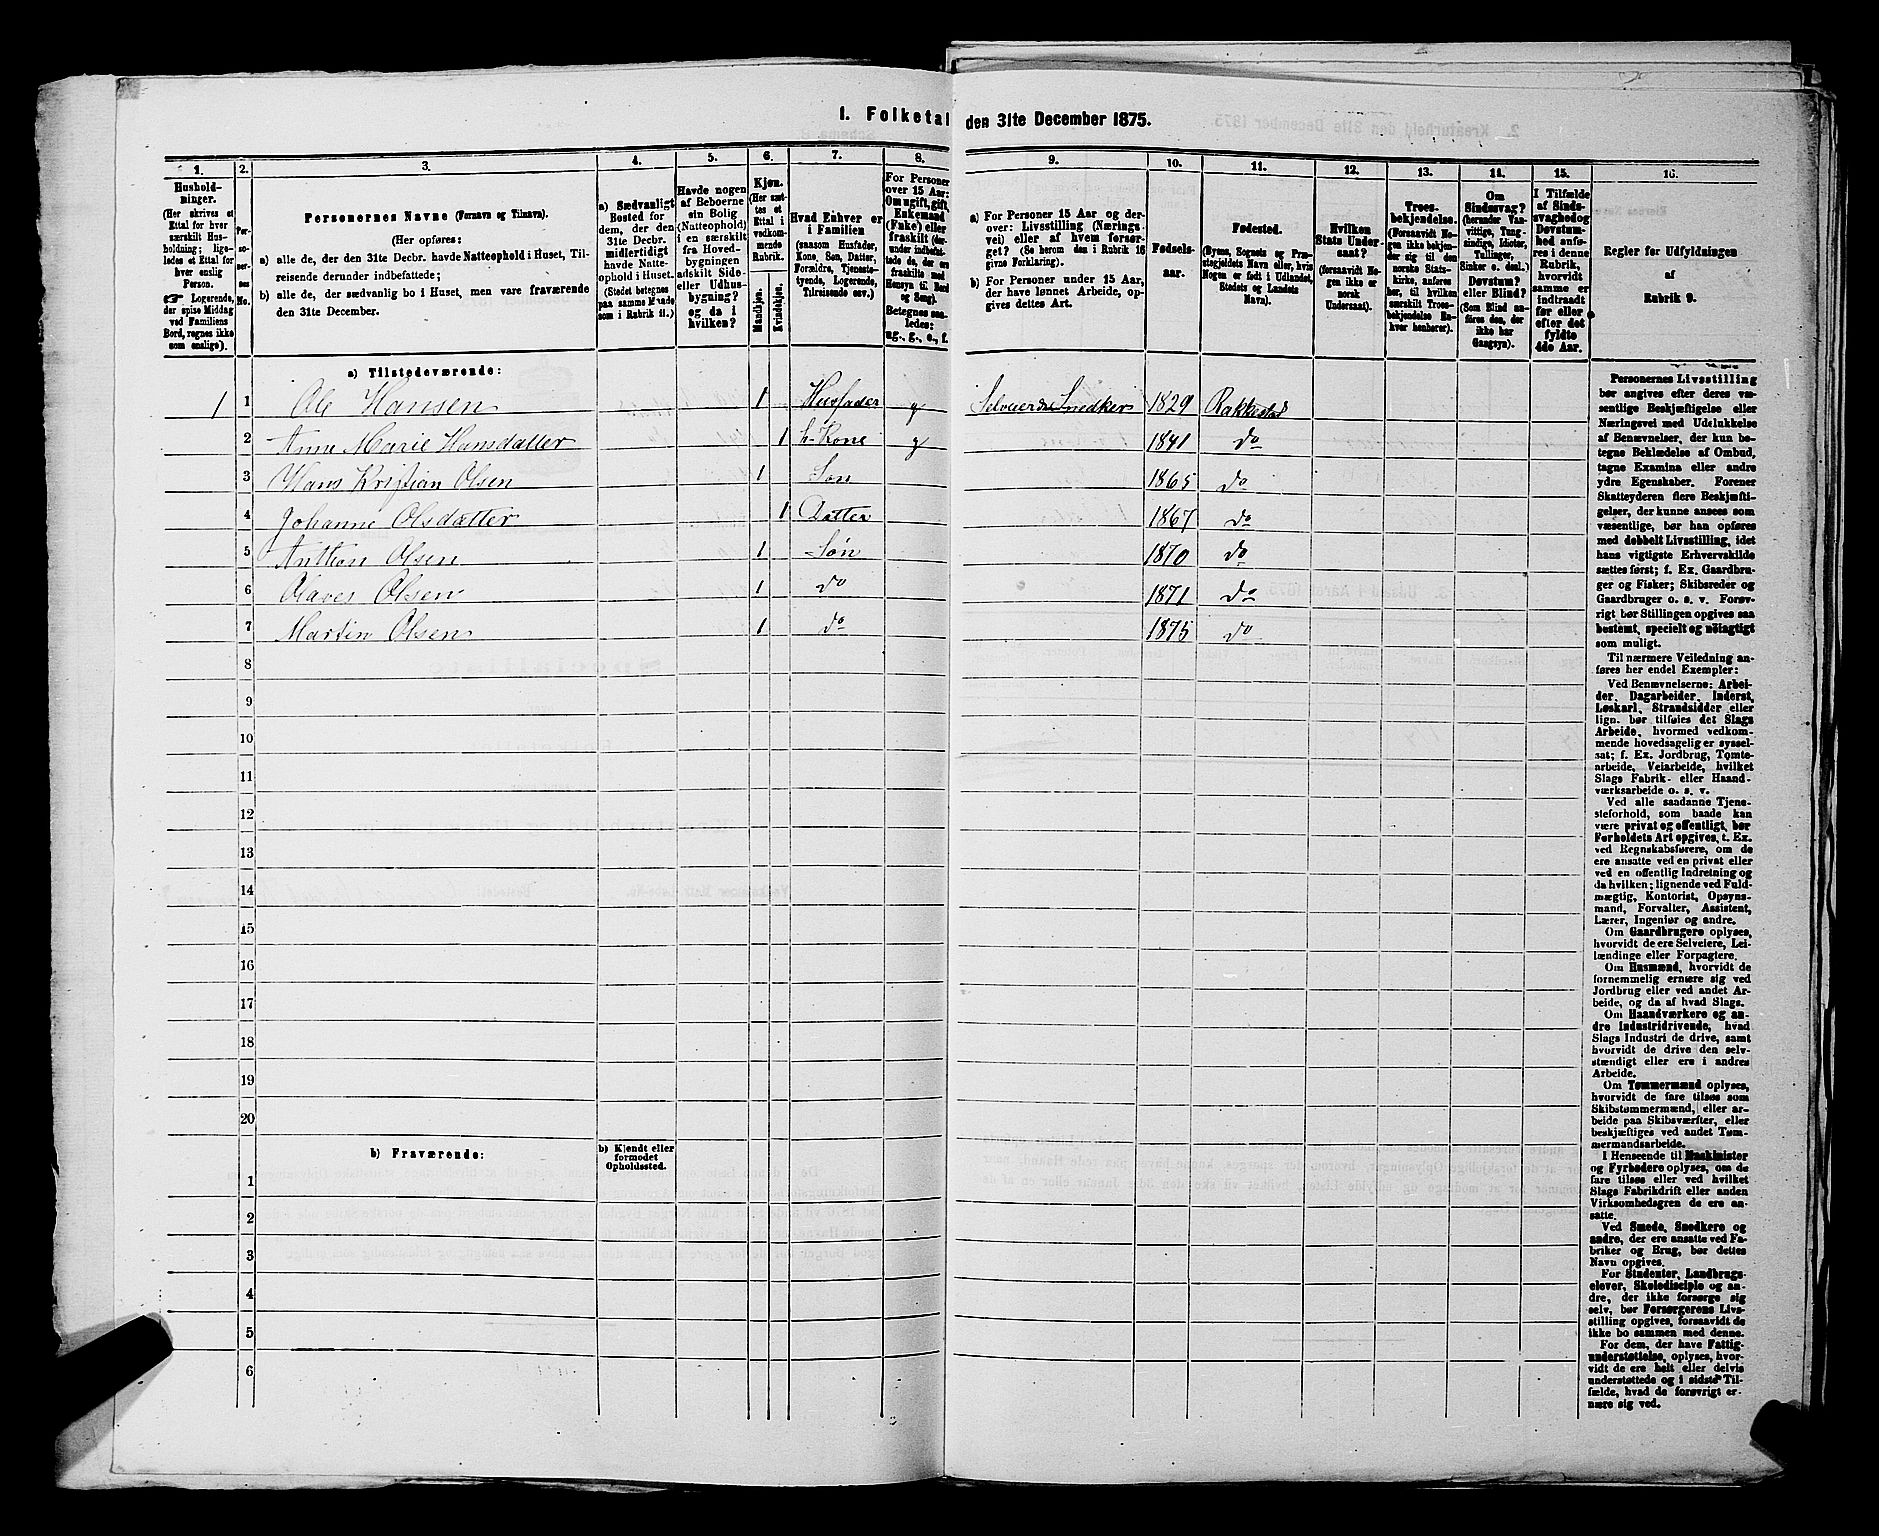 1. Folketal den 31te December 1875.
1. 2. 3. 4. 5. 6. 7. 8. 9. 10. 11. 12. 13. 14. 15. 16.
Hushold-
ninger.
(Her skrives et
Ettal for hver
særskilt Hus-
holdning; lige-
ledes et Ettal for
hver enslig
Person.
☞ Logerende,
der spise Middag
ved Familiens
Bord, regnes ikke
som enslige).
Per-
so-
ner-
nes
No.
Personernes Navne (Fornavn og Tilnavn).
(Her opføres:
a) alle de, der den 31te Decbr. havde Natteophold i Huset, Til-
reisende derunder indbefattede;
b) alle de, der sædvanlig bo i Huset, men vare fraværende
den 31te December.
a) Sædvanligt
Bosted for
dem, der den
31te Decbr.
midlertidigt
havde Natte-
ophold i Huset.
(Stedet betegnes
paa samme Maade
som i Rubrik 11.)
Havde nogen
af Beboerne
sin Bolig
(Natteophold)
i en særskilt
fra Hoved-
bygningen
adskilt Side-
eller Udhus-
bygning?
og da i
hvilken?
Kjøn.
(Her sæt-
tes et
Ettal i
vedkom-
mende
Rubrik.
Mandkjøn.
Kvindekjøn.
Hvad Enhver er
i Familien
(saasom Husfader,
Kone, Søn, Datter,
Forældre, Tjeneste-
tyende, Logerende,
Tilreisende osv.)
For Personer
over 15 Aar:
Om ugift, gift,
Enkemand
(Enke) eller
fraskilt (der-
under indbefat-
tede de, der ere
fraskilte med
Hensyn til Bord
og Seng).
Betegnes saa-
ledes:
ug., g., e., f.
a) For Personer 15 Aar og der-
over: Livsstilling (Nærings-
vei) eller af hvem forsør-
get? (Se herom den i Rubrik 16
givne Forklaring).
b) For Personer under 15 Aar,
der have lønnet Arbeide, op-
gives dettes Art.
Fødsels-
aar.
Fødested.
(Byens, Sognets og Præ-
stegjeldets Navn eller, hvis
Nogen er født i Udlandet,
Stedets og Landets
Navn).
Hvilken
Stats Under-
saat?
(forsaavidt No-
gen ikke er
norsk
Undersaat).
Troes-
bekjendelse.
(Forsaavidt No-
gen ikke bekjen-
der sig til den
norske Stats-
kirke, anføres
her, til hvilken
særskilt Troes-
bekjendelse En-
hver henhører).
Om
Sindssvag?
(herunder Van-
vittige, Tung-
sindige, Idioter,
Tullinger,
Sinker o. desl.)
Døvstum?
eller Blind?
(Som Blind an-
føres den, der
ikke har
Gangsyn).
I Tilfælde
af Sinds-
svaghed og
Døvstum-
hed anfø-
res i denne
Rubrik,
hvorvidt
samme er
indtraadt
før eller
efter det
fyldte
4de Aar.
Regler for Udfyldningen
af
Rubrik 9.
a) Tilstedeværende:
1 1 Ole Hansen 1 Husfader g Selveier og Snedker 1829 Rakkestad
2 Anne Marie Hansdatter 1 h. Kone g 1841 do
3 Hans Kristian Olsen 1 Søn 1865 do
4 Johanne Olsdatter 1 Datter 1867 do
5 Anthon Olsen 1 Søn 1870 do
6 Olaves Olsen 1 do 1871 do
7 Martin Olsen 1 do 1875 do
8
9
10
11
12
13
14
15
16
17
18
19
20
b) Fraværende:
b) Kjendt eller
formodet
Opholdssted.
1
2
3
4
5
6
Personernes Livsstilling
bør angives efter deres væ-
sentlige Beskjæftigelse eller
Næringsvei med Udelukkelse
af Benævnelser, der kun be-
tegne Beklædelse af Ombud,
tagne Examina eller andre
ydre Egenskaber. Forener
Skatteyderen flere Beskjæfti-
gelser, der kunne ansees som
væsentlige, bør han opføres
med dobbelt Livsstilling, idet
hans vigtigste Erhvervskilde
sættes først; f. Ex. Gaardbru-
ger og Fisker; Skibsreder og
Gaardbruger o. s. v. Forøv-
rigt bør Stillingen opgives saa
bestemt, specielt og nöiagtigt
som muligt.
Til nærmere Veiledning an-
føres her endel Exempler:
Ved Benævnelserne: Arbei-
der, Dagarbeider, Inderst,
Løskarl, Strandsidder eller
lign. bør tilføies det Slags
Arbeide, hvormed vedkom-
mende hovedsagelig er syssel-
sat; f. Ex. Jordbrug, Tomte-
arbeide, Veiarbeide, hvilket
Slags Fabrik- eller Haand-
værksarbeide o. s. v.
Ved alle saadanne Tjene-
steforhold, som baade kan
være privat og offentligt, bør
Forholdets Art opgives, t. Ex.
ved Regnskabsførere, om de
ere ansatte ved en privat eller
ved en offentlig Indretning og
da hvilken; lignende ved Fuld-
mægtig, Kontorist, Opsyns-
mand, Forvalter, Assistent,
Lærer, Ingeniør og andre.
Om Gaardbrugere oplyses,
hvorvidt de ere Selveiere, Lei-
lændinge eller Forpagtere.
Om Husmænd, hvorvidt de
fornemmelig ernære sig ved
Jordbrug eller ved andet Ar-
beide, og da af hvad Slags.
Om Haandværkere og an-
dre Industridrivende, hvad
Slags Industri de drive, samt
hvorvidt de drive den selv-
stændigt eller ere i andres
Arbeide.
Om Tømmermænd oplyses,
hvorvidt de fare tilsøs som
Skibstømmermænd, eller ar-
beide paa Skibsværfter, eller
beskjæftiges ved andet Tøm-
mermandsarbeide.
I Henseende til Maskinister
og Fyrbødere oplyses, om de
fare tilsøs eller ved hvilket
Slags Fabrikdrift eller anden
Virksomhedsgren de ere an-
satte.
Ved Smede, Snedkere og
andre, der ere ansatte ved Fa-
briker og Brug, bør dettes
Navn opgives.
For Studenter, Landbrugs-
elever, Skoledisciple og an-
dre, der ikke forsørge sig
selv, bør Forsørgerens Livs-
stilling opgives, forsaavidt de
ikke bo sammen med denne.
For dem, der have Fattig-
understøttelse, oplyses, hvor-
vidt de ere helt eller delvis
understøttede og i sidste Til-
fælde, hvad de forøvrigt er-
nære sig ved.